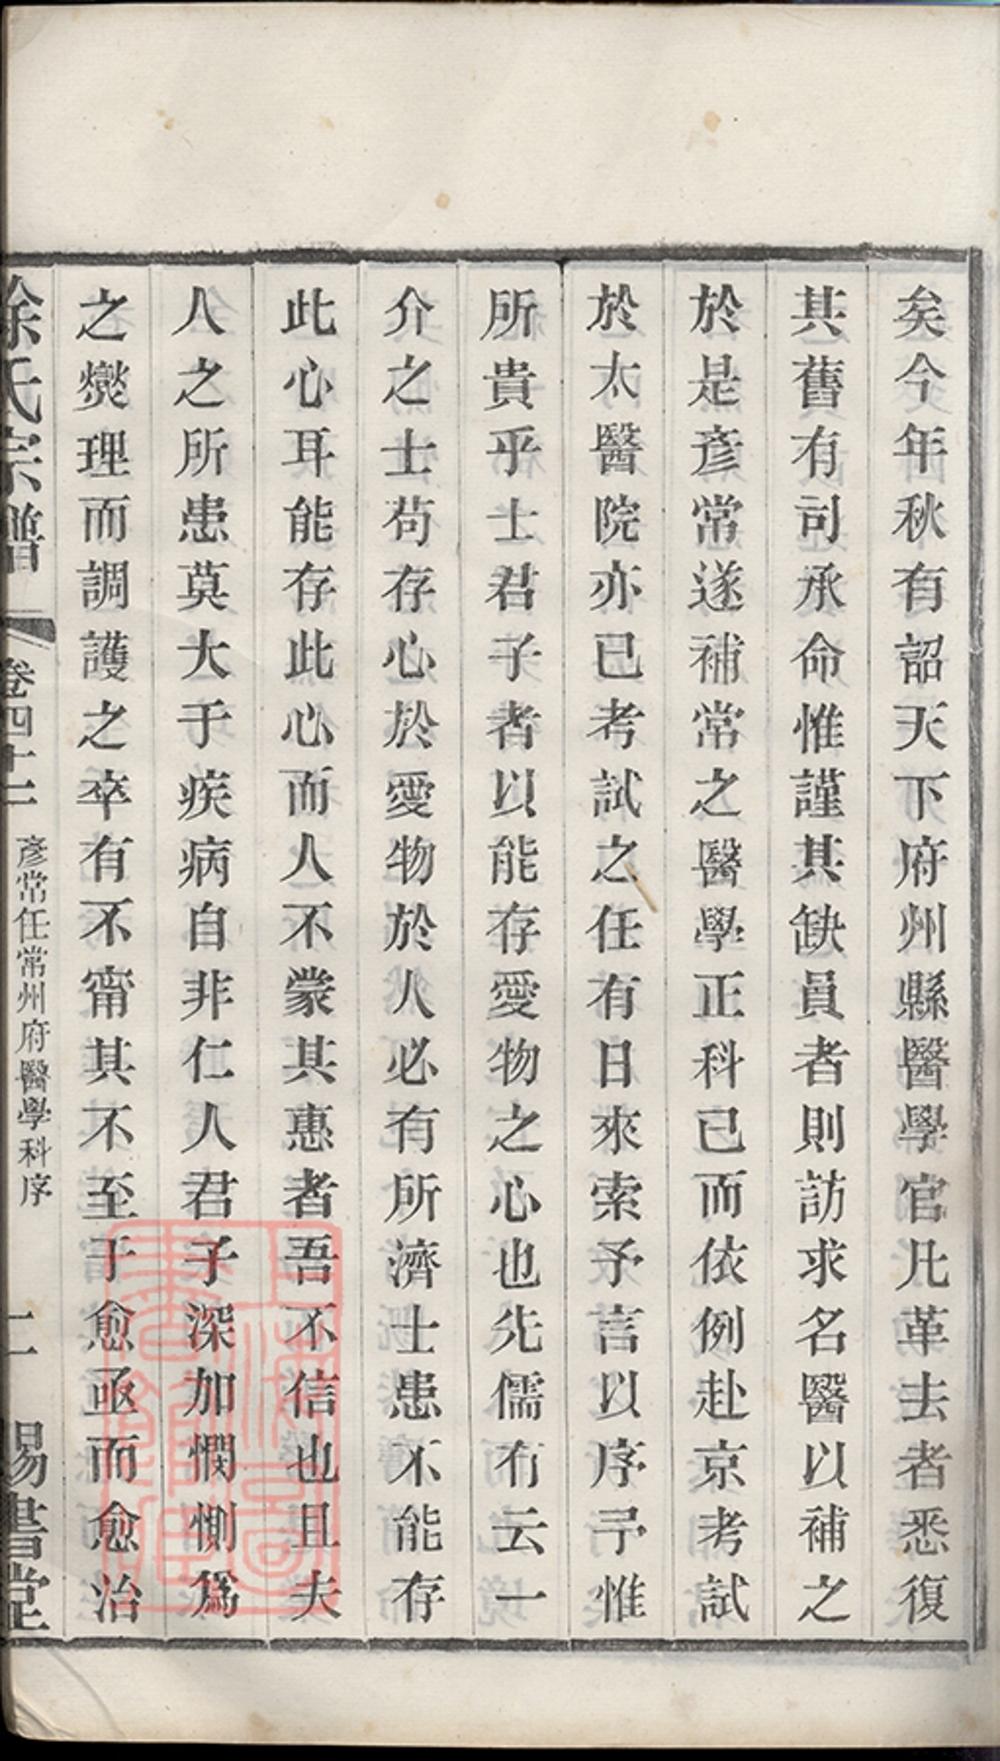 矣今年秋有詔天下府州縣醫學官凡革去者悉復
其舊有司承命惟謹其缺員者則訪求名醫以補之
於是彥常遂補常之醫學正科已而依例赴京考試
於太醫院亦已考試之任有日來索予言以序予惟
所貴乎士君子者以能存愛物之心也先儒有云一
介之士苟存心於愛物於人必有所濟士患不能存
此心耳能存此心而人不蒙其惠者吾不信也且夫
人之所患莫大于疾病自非仁人君子深加憫惻爲
之燮理而調護之卒有不甯其不至于愈亟而愈治
徐氏宗譜
卷四十二
彥常任常州府醫學科序
二
賜書堂